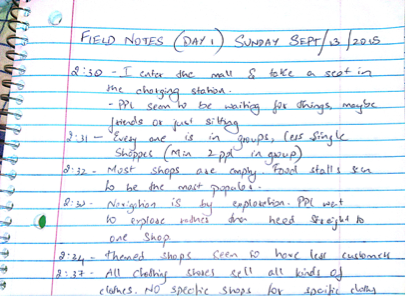 FIELD NOTES (DAY 1) SUNDAY SEPT/13/2015
2:30 - I enter the mall & take a seat in
the charging station.
- PPL seem to be waiting for things, maybe
friends or just sitting
2:31 - Every one is in groups, less single
Shoppes (Min 2 ppl in group)
2:32 - Most shops are empty. Food stalls
to be the most
is by exploration. PPL
to explore rather than head straight to
one shop
themed shops seem to have less customers
2:37 - All clothing stores sell all kinds of
clothes. NO specific shops for